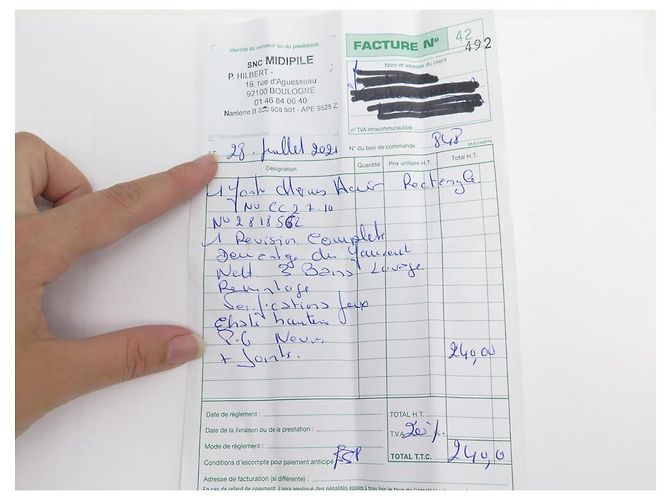 Identité du vendeur ou du prestataire
SNC MIDIPILE
P. HILBERT -
16, rue d'Aguesseau
92100 BOULOGNE
01 46 84 06 40
Nanterre B 350 908 901 - APE 9525 Z
N° TVA intracommunautaire
FACTURE N° 42
492
Nom et adresse du client
n° TVA intracommunautaire
28 Juillet 2021
N° du bon de commande 848
EXACOMPTA
Désignation Quantité Prix unitaire H.T. Total H.T.
1 Acier Rectangle
No CC 27 10
No 281856L
1 Revision Complete
du
Nett. 3 Bains Lavage
Remontage
Verifications
P.6 Neuve
+ Joints. 240,00
Date de règlement :
TOTAL H.T.
Date de la livraison ou de la prestation :
T.V.A. 20%
Mode de règlement :
Conditions d'escompte pour paiement anticipé
TOTAL T.T.C. 240,0
Adresse de facturation (si différente) :
En cas de retard de paiement, il sera appliqué des pénalités égales à trois fois le taux